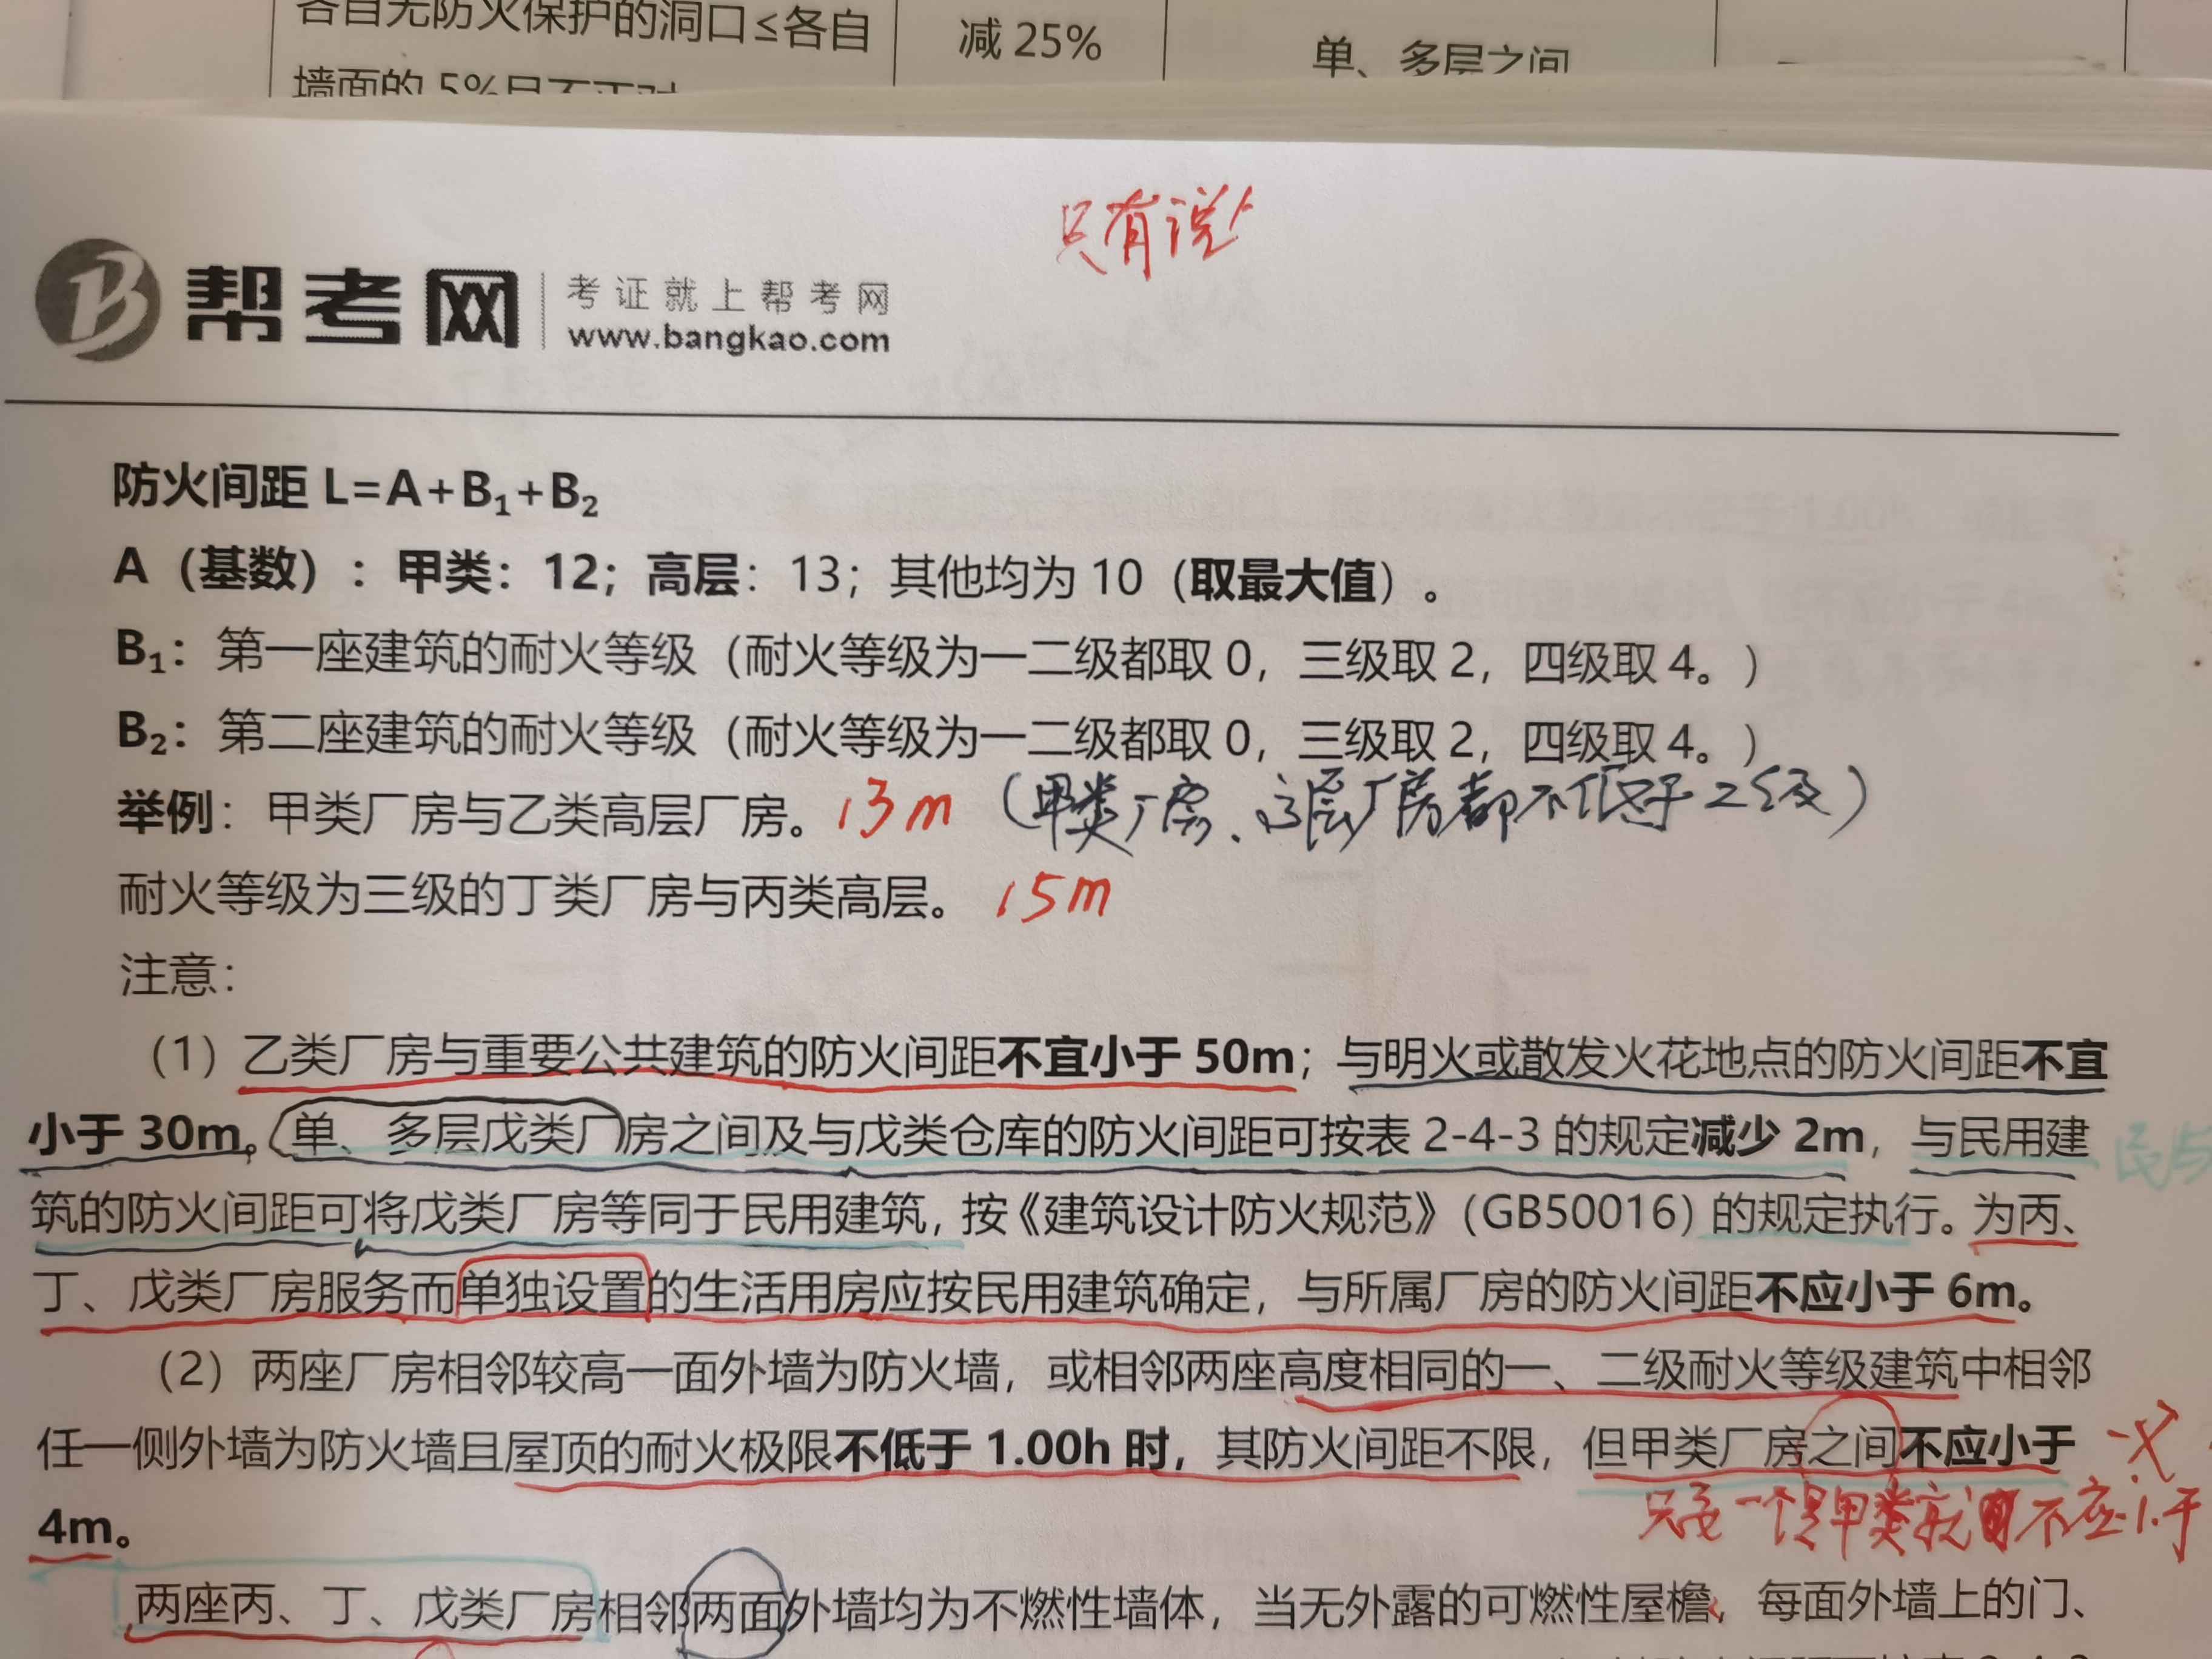 各自无防火保护的洞口≤各自
减 25%
单、多层之间
墙面的 5%且不正对
只有说
帮考网
考证就上帮考网
www.bangkao.com
防火间距 L=A+B₁+B₂
A（基数）：甲类：12；高层：13；其他均为 10（取最大值）。
B₁：第一座建筑的耐火等级（耐火等级为一二级都取 0，三级取 2，四级取 4。）
B₂：第二座建筑的耐火等级（耐火等级为一二级都取 0，三级取 2，四级取 4。）
举例：甲类厂房与乙类高层厂房。 13m （甲类厂房、高层厂房都不低于2级）
耐火等级为三级的丁类厂房与丙类高层。 15m
注意：
（1）乙类厂房与重要公共建筑的防火间距不宜小于 50m；与明火或散发火花地点的防火间距不宜
小于 30m。单、多层戊类厂房之间及与戊类仓库的防火间距可按表 2-4-3 的规定减少 2m，与民用建
民与
筑的防火间距可将戊类厂房等同于民用建筑，按《建筑设计防火规范》（GB50016）的规定执行。为丙、
丁、戊类厂房服务而单独设置的生活用房应按民用建筑确定，与所属厂房的防火间距不应小于 6m。
（2）两座厂房相邻较高一面外墙为防火墙，或相邻两座高度相同的一、二级耐火等级建筑中相邻
任一侧外墙为防火墙且屋顶的耐火极限不低于 1.00h 时，其防火间距不限，但甲类厂房之间不应小于
4m。
一个是甲类就不应小于
两座丙、丁、戊类厂房相邻两面外墙均为不燃性墙体，当无外露的可燃性屋檐，每面外墙上的门、